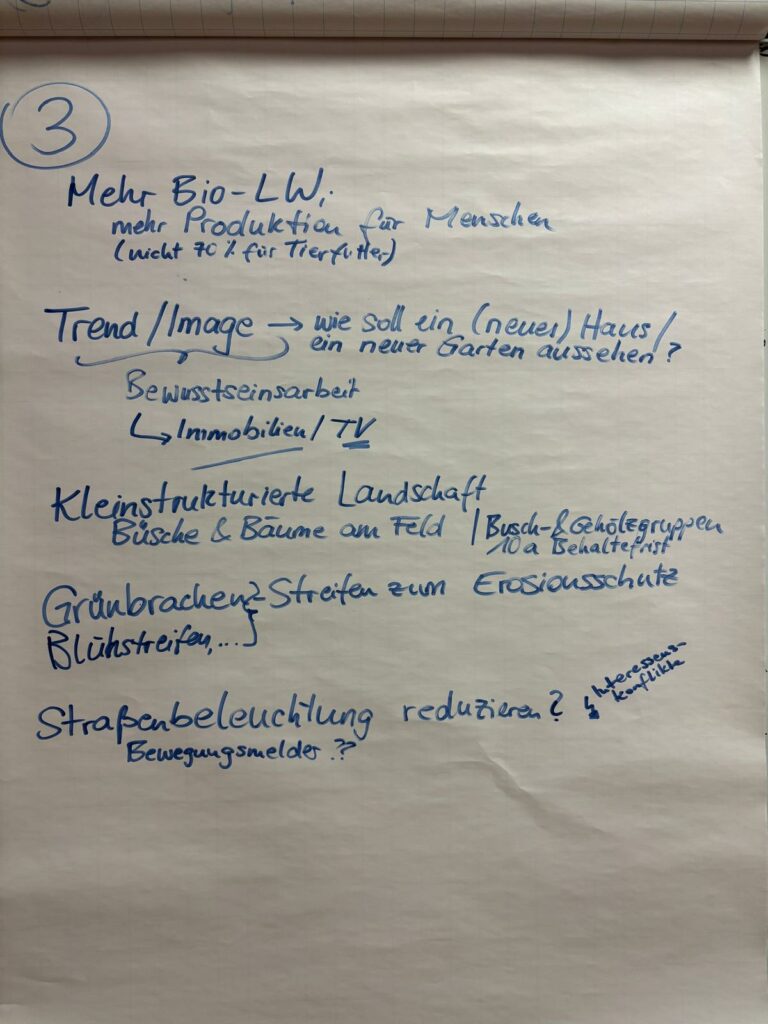 3
Mehr Bio-LW,
mehr Produktion für Menschen
(nicht 70% für Tierfutter)
Trend/Image → wie soll ein (neues) Haus/
ein neuer Garten aussehen?
Bewusstseinsarbeit
↳ Immobilien/TV
Kleinstrukturierte Landschaft
Büsche & Bäume am Feld | Busch- & Gehölzgruppen
10a Behaltefrist
Grünbrachen - Streifen zum Erosionsschutz
Blühstreifen,...
Straßenbeleuchtung reduzieren? ↯ Interessens-
konflikte
Bewegungsmelder ??